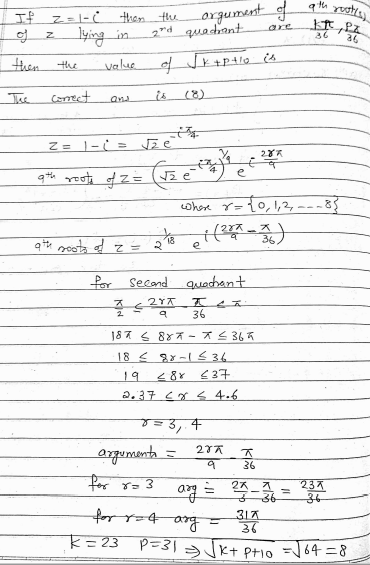 If z=1-i then the argument of 9th root(s)
of z lying in 2nd quadrant are kπ/36, pπ/36
then the value of √k+p+10 is
The correct ans is (8)
z = 1-i = √2 e^(-iπ/4)
9th roots of z = (√2 e^(-iπ/4))^(1/9) e^(i 2rπ/9)
where r = {0,1,2,----8}
9th roots of z = 2^(1/18) e^(i(2rπ/9 - π/36))
for second quadrant
π/2 ≤ 2rπ/9 - π/36 ≤ π
18π ≤ 8rπ - π ≤ 36π
18 ≤ 8r-1 ≤ 36
19 ≤ 8r ≤ 37
2.37 ≤ r ≤ 4.6
r = 3, 4
arguments = 2rπ/9 - π/36
for r=3 arg = 2π/3 - π/36 = 23π/36
for r=4 arg = 31π/36
k = 23 p = 31 ⇒ √k+p+10 = √64 = 8